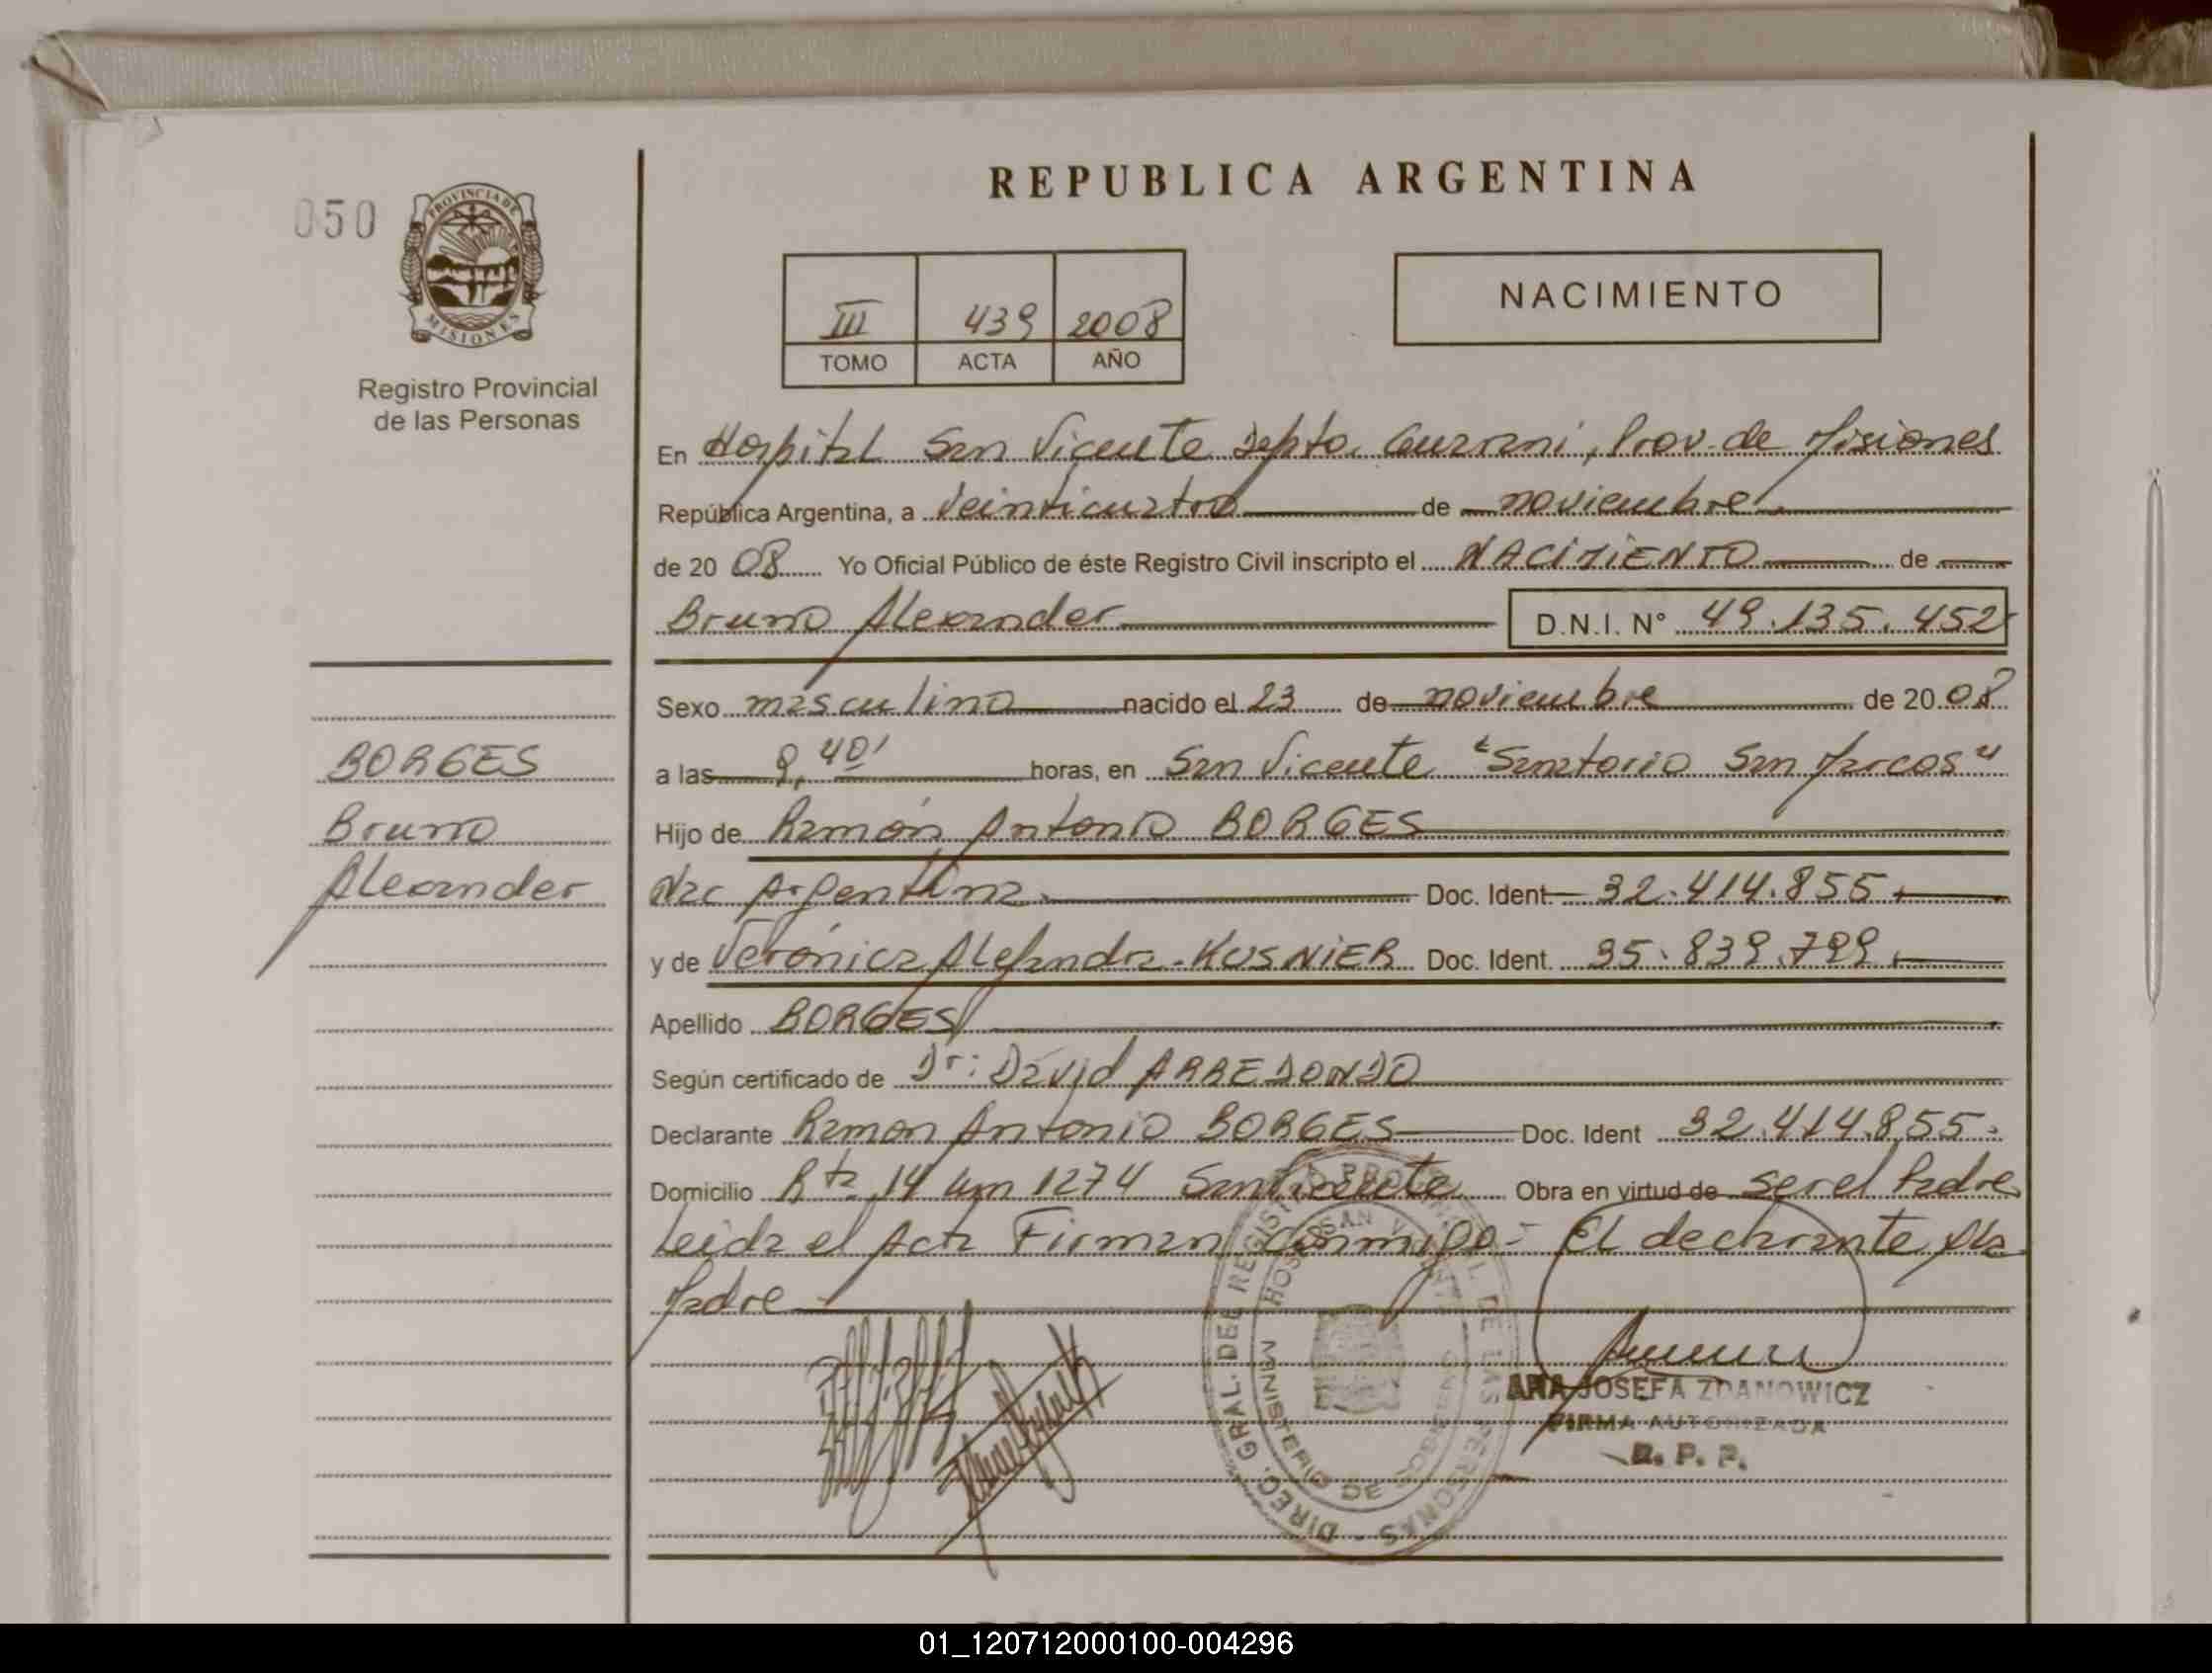 REPUBLICA ARGENTINA
050
PROVINCIA DE
MISIONES
Registro Provincial
de las Personas
III 439 2008
TOMO ACTA AÑO
NACIMIENTO
En Hospital San Vicente Depto. Guaraní, Prov. de Misiones
República Argentina, a veinticuatro de noviembre
de 20 08 Yo Oficial Público de éste Registro Civil inscripto el NACIMIENTO de
Bruno Alexander D.N.I. N° 49.135.452
Sexo masculino nacido el 23 de noviembre de 20 08
a las 9,40' horas, en San Vicente "Sanatorio San Marcos"
Hijo de Ramón Antonio BORGES
Nac Argentina. Doc. Ident 32.414.855.
y de Verónica Alejandra KUSNIER Doc. Ident. 35.839.799.
Apellido BORGES
Según certificado de Dr: David ARREDONDO
Declarante Ramon Antonio BORGES Doc. Ident 32.414.855.
Domicilio Rta 14 Km 1274 San Vicente Obra en virtud de ser el Padre
Leida el Acta Firman Conmigo - El declarante y la
Madre
BORGES
Bruno
Alexander
DIREC. GRAL. DEL REGISTRO PROVINCIAL DE LAS PERSONAS
HOSP. SAN VICENTE
MINISTERIO DE GOBIERNO
ANA JOSEFA ZDANOWICZ
FIRMA AUTORIZADA
R. P. P.
01_120712000100-004296